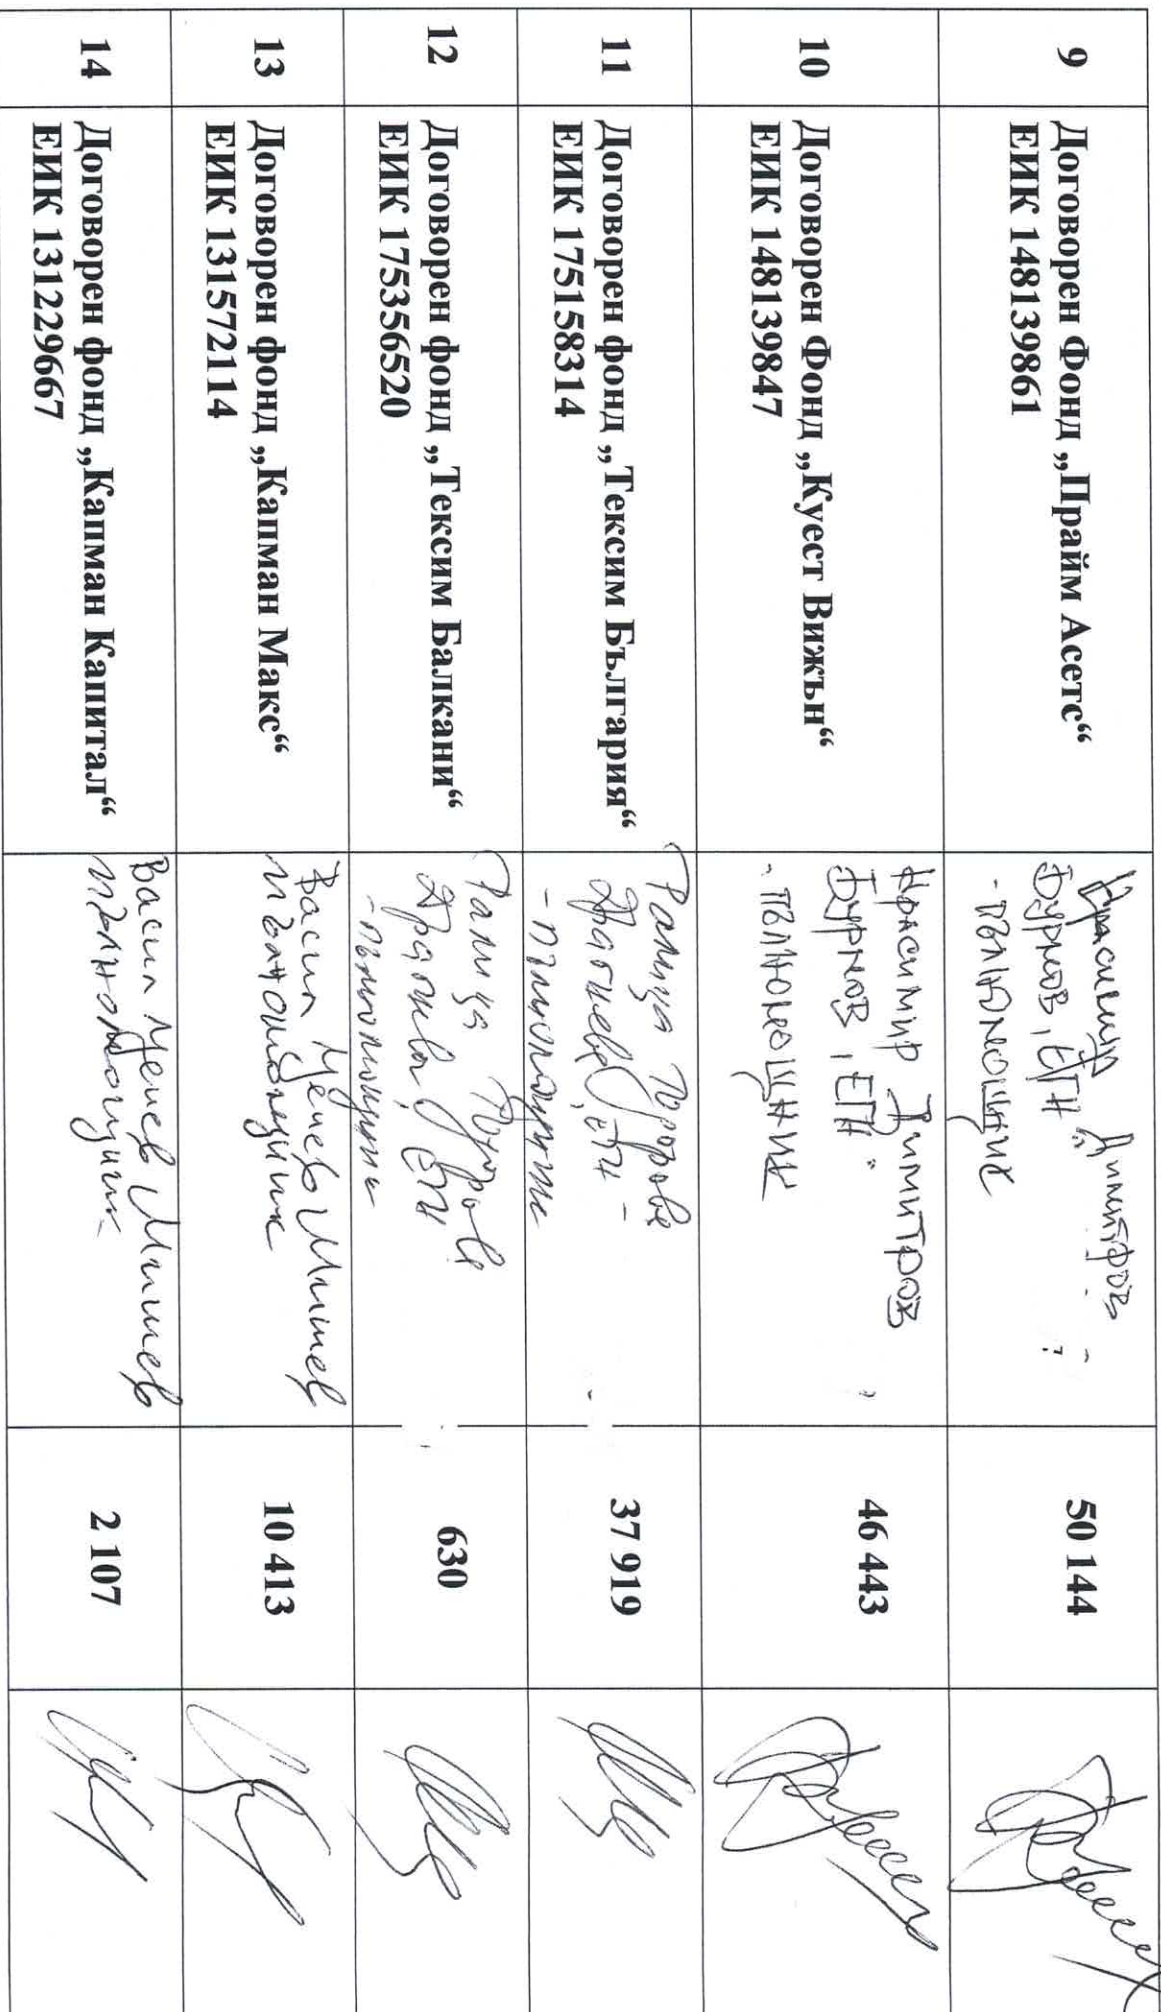 9
Договорен Фонд „Прайм Асетс“
ЕИК 148139861
Красимир Димитров
Бурнов, ЕГН
- ПЪЛНОМОЩНИК
50 144
10
Договорен Фонд „Куест Вижън“
ЕИК 148139847
Красимир Димитров
Бурнов, ЕГН
- ПЪЛНОМОЩНИК
46 443
11
Договорен фонд „Тексим България“
ЕИК 175158314
Ралица Тодорова
ЕГН -
- пълномощник
37 919
12
Договорен фонд „Тексим Балкани“
ЕИК 175356520
Ралица Тодорова
ЕГН
- пълномощник
630
13
Договорен фонд „Капман Макс“
ЕИК 131572114
Васил Мишев
пълномощник
10 413
14
Договорен фонд „Капман Капитал“
ЕИК 131229667
Васил Мишев
пълномощник
2 107